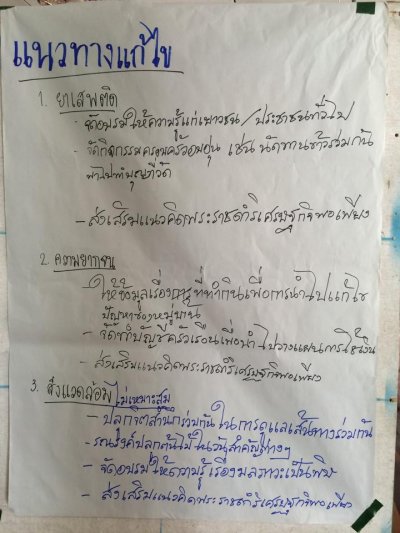 แนวทางแก้ไข
1. ยาเสพติด
- จัดอบรมให้ความรู้แก่เยาวชน/ประชาชนทั่วไป
- จัดกิจกรรมครอบครัวอบอุ่น เช่น นัดทานข้าวร่วมกัน
พาไปทำบุญที่วัด
- ส่งเสริมแนวคิดพระราชดำริเศรษฐกิจพอเพียง
2. ความยากจน
- ให้ข้อมูลเรื่องการที่ทำกินเพื่อการนำไปแก้ไข
ปัญหาของหมู่บ้าน
- จัดทำบัญชีครัวเรือนเพื่อนำไปวางแผนการใช้เงิน
- ส่งเสริมแนวคิดพระราชดำริเศรษฐกิจพอเพียง
3. สิ่งแวดล้อมไม่เหมาะสม
- ปลูกจิตสำนึกร่วมกันในการดูแลเส้นทางร่วมกัน
- รณรงค์ปลูกต้นไม้ในวันสำคัญต่างๆ
- จัดอบรมให้ความรู้เรื่องมลภาวะเป็นพิษ
- ส่งเสริมแนวคิดพระราชดำริเศรษฐกิจพอเพียง